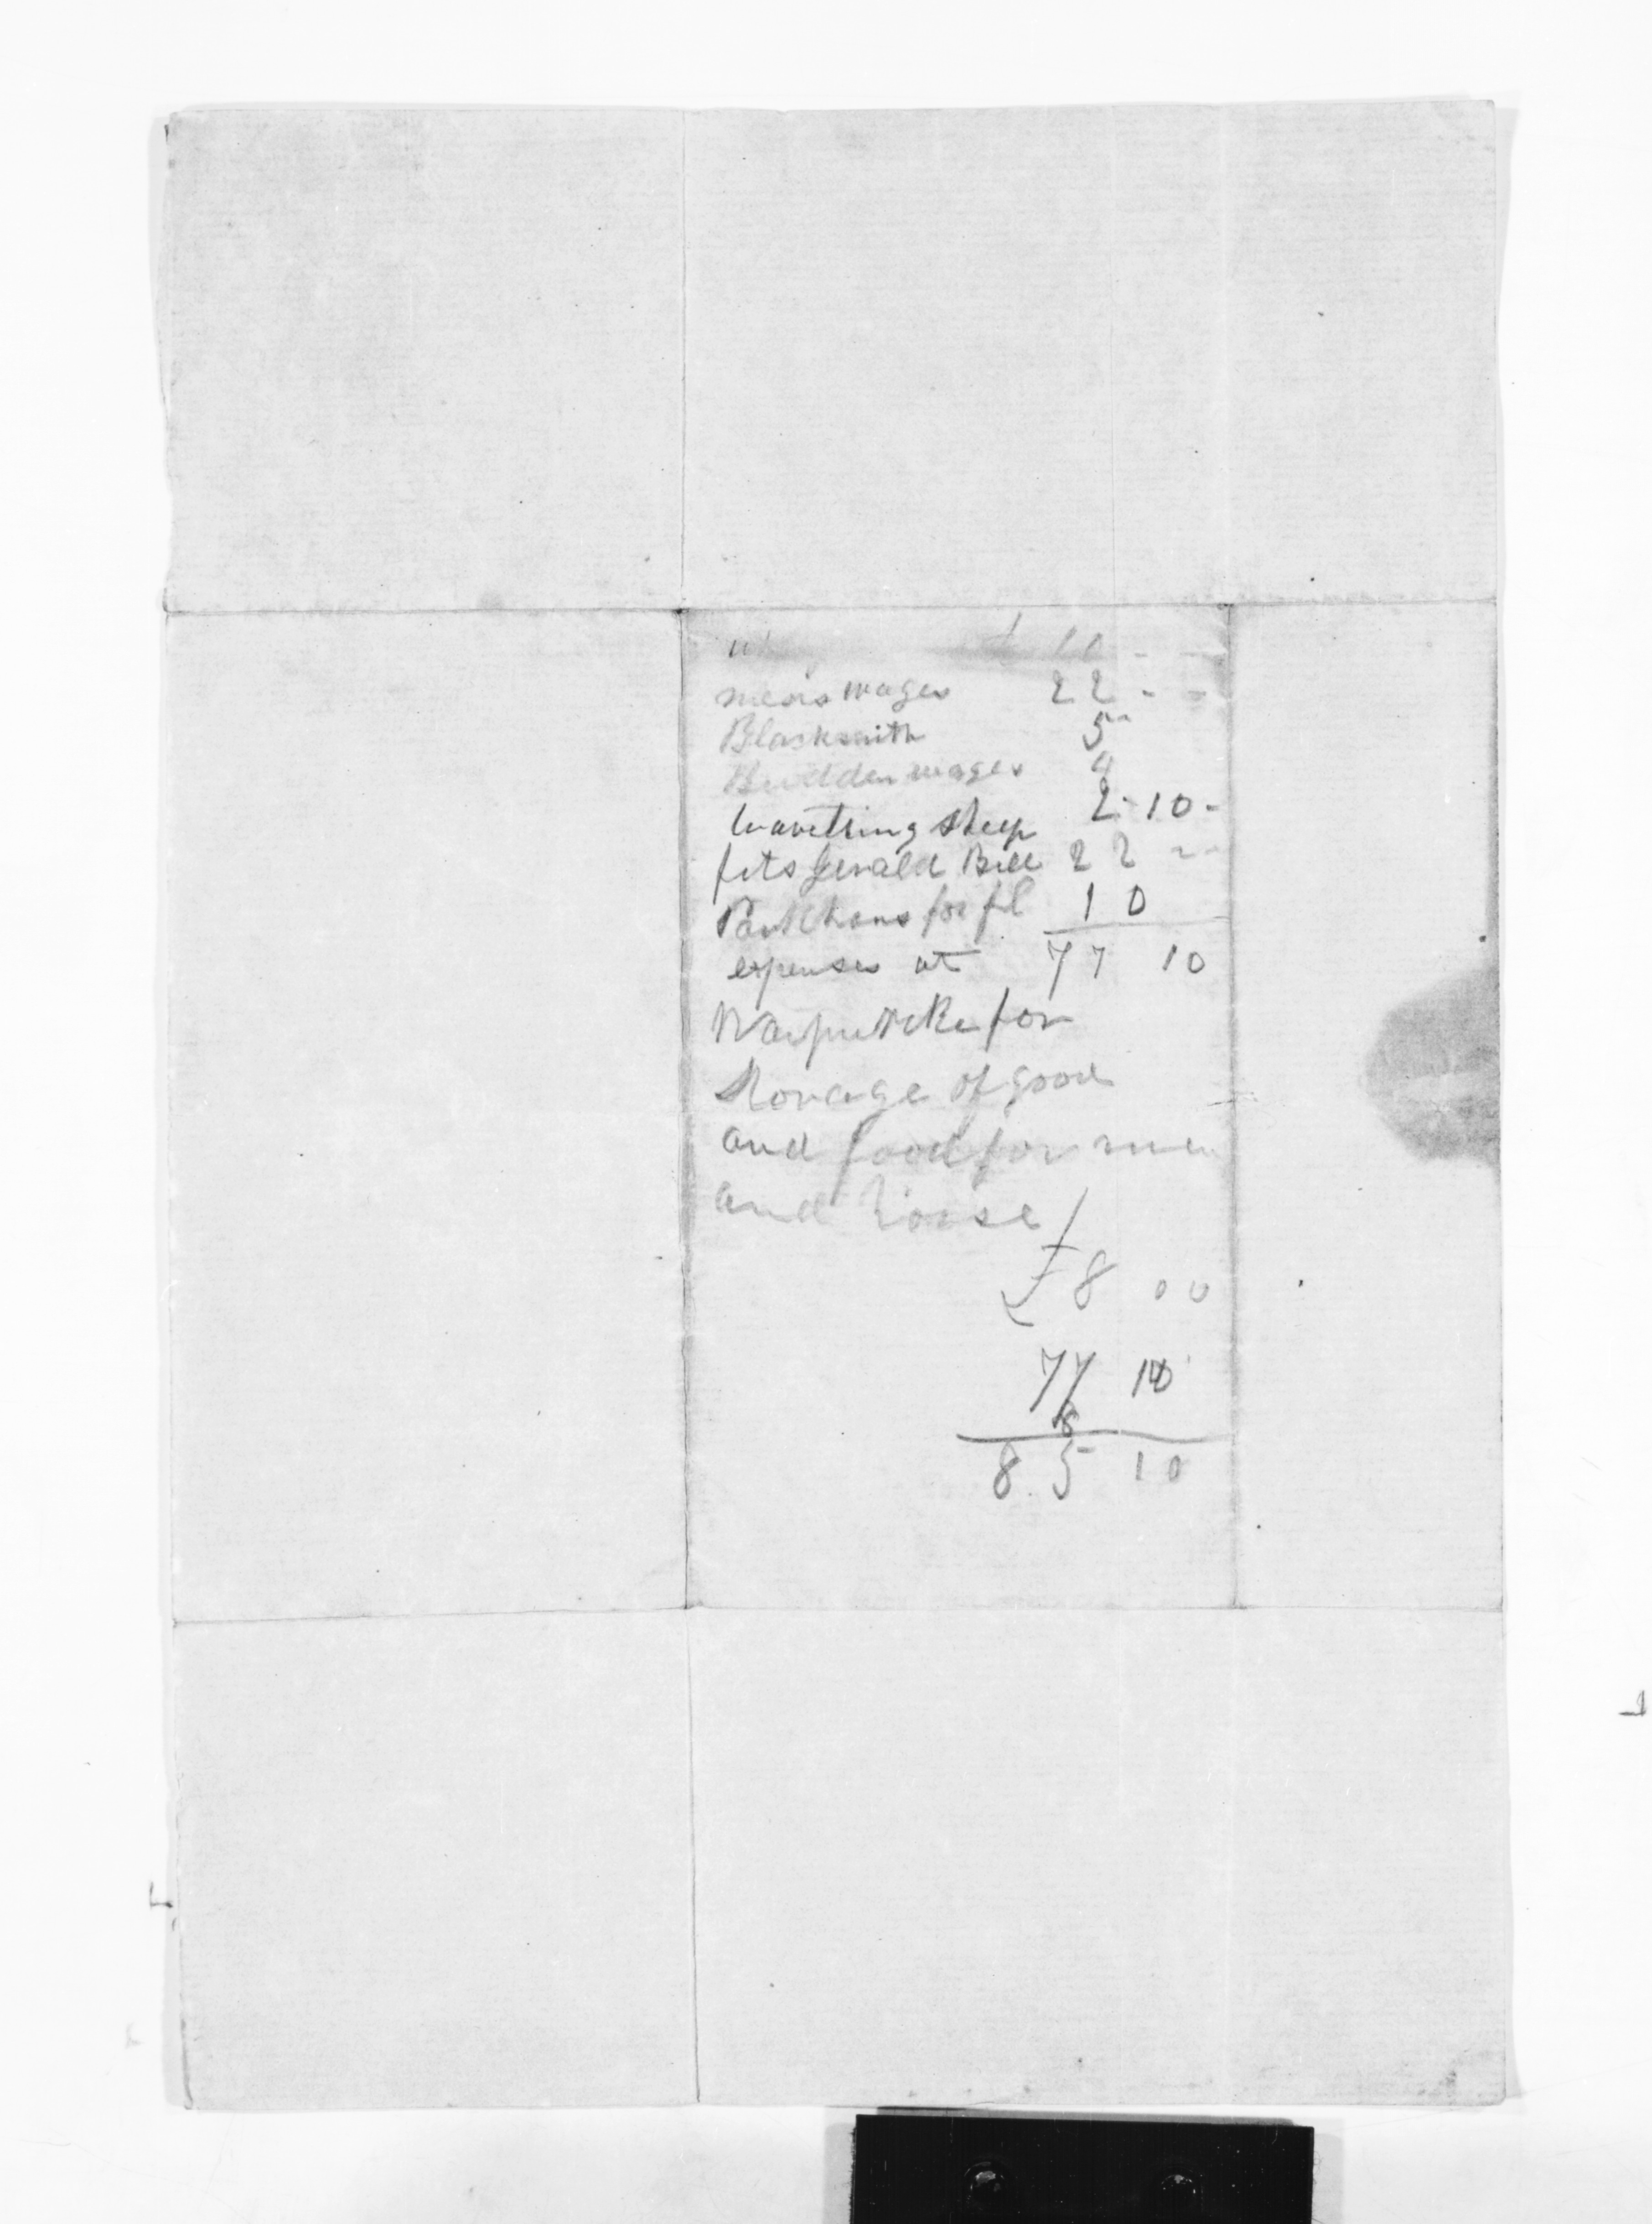 £ 10 - -
mens wages 22 - -
Blacksmith 5 -
wages 4
travelling sheep 2 - 10 -
fitsgerald Bill 22 - -
for 10
expenses at 77 10
Waipureku for
Storage of good
and food for men
and horse
£8 00
77 10
8
85 10